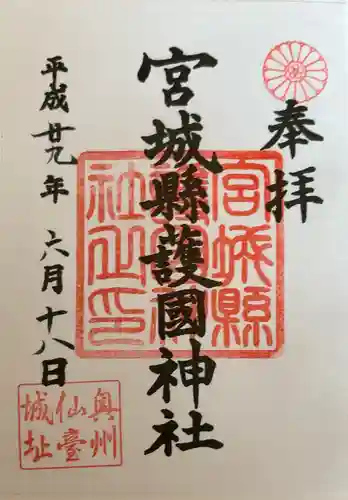 奉拝
宮城縣護國神社
平成廿九年六月十八日
宮城縣
護國神
社之印
奥州
仙臺
城址